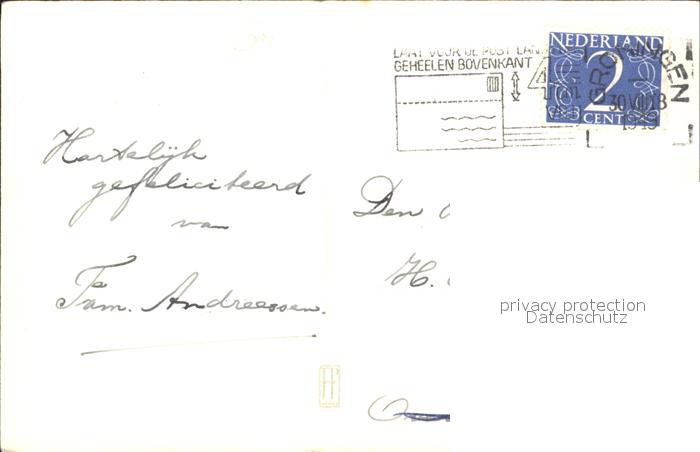 LAAT VOOR DE POST
GEHEELEN BOVENKANT
NEDERLAND
2
CENT
GRONINGEN
1949
Hartelijk
gefeliciteerd
van
Fam. Andreessen.
Den
H.
privacy protection
Datenschutz
H